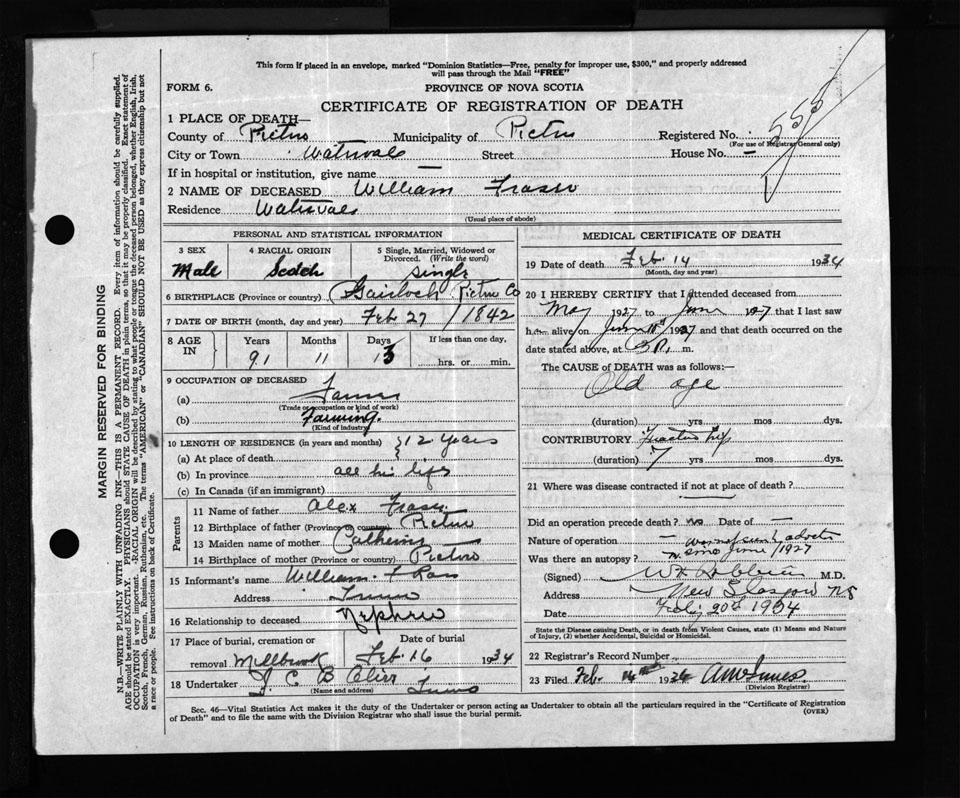 This form if placed in an envelope, marked "Dominion Statistics—Free, penalty for improper use, $300," and properly addressed
will pass through the Mail "FREE"
FORM 6.
PROVINCE OF NOVA SCOTIA
CERTIFICATE OF REGISTRATION OF DEATH
1 PLACE OF DEATH—
County of Pictou Municipality of Pictou Registered No.
(For use of Registrar General only)
City or Town Watervale Street House No. —
If in hospital or institution, give name —
2 NAME OF DECEASED William Fraser
Residence Watervale
(Usual place of abode)
PERSONAL AND STATISTICAL INFORMATION
3 SEX 4 RACIAL ORIGIN 5 Single, Married, Widowed or
Divorced. (Write the word)
Male Scotch Single
6 BIRTHPLACE (Province or country) Gairloch Pictou Co
7 DATE OF BIRTH (month, day and year) Feb 27 / 1842
8 AGE IN Years Months Days If less than one day,
91 11 13 hrs. or min.
9 OCCUPATION OF DECEASED
(a) Farmer
(Trade or occupation or kind of work)
(b) Farming
(Kind of industry)
10 LENGTH OF RESIDENCE (in years and months)
(a) At place of death 12 years
(b) In province all his life
(c) In Canada (if an immigrant)
Parents
11 Name of father Alex Fraser
12 Birthplace of father (Province or country) Pictou
13 Maiden name of mother Catherine —
14 Birthplace of mother (Province or country) Pictou
15 Informant's name William F Ross
Address Truro
16 Relationship to deceased Nephew
17 Place of burial, cremation or Date of burial
removal Millbrook Feb 16 1934
18 Undertaker J. C. B. Truro
(Name and address)
MEDICAL CERTIFICATE OF DEATH
19 Date of death Feb. 14 1934
(Month, day and year)
20 I HEREBY CERTIFY that I attended deceased from
May 1927 to June 1927 that I last saw
h alive on June 1927 and that death occurred on the
date stated above, at m.
The CAUSE of DEATH was as follows:—
Old age
(duration) yrs mos dys.
CONTRIBUTORY Fractured hip
(duration) 7 yrs mos dys.
21 Where was disease contracted if not at place of death? —
Did an operation precede death? no Date of —
Nature of operation —
Was there an autopsy? since June / 1927
(Signed) M.D.
Address New Glasgow NS
Date Feb 20th 1934
State the Disease causing Death, or in death from Violent Causes, state (1) Means and Nature
of Injury, (2) whether Accidental, Suicidal or Homicidal.
22 Registrar's Record Number
23 Filed Feb. 193 A M Innes
(Division Registrar)
Sec. 46—Vital Statistics Act makes it the duty of the Undertaker or person acting as Undertaker to obtain all the particulars required in the "Certificate of Registration
of Death" and to file the same with the Division Registrar who shall issue the burial permit.
(OVER)
MARGIN RESERVED FOR BINDING
N.B.—WRITE PLAINLY WITH UNFADING INK—THIS IS A PERMANENT RECORD. Every item of information should be carefully supplied.
AGE should be stated EXACTLY. PHYSICIANS should STATE CAUSE OF DEATH in plain terms, so that it may be properly classified. Exact statement of
OCCUPATION is very important. RACIAL ORIGIN will be described by stating to what people or tongue the deceased person belonged, whether English, Irish,
Scotch, French, German, Russian, Ruthenian, etc. The terms "AMERICAN" or "CANADIAN" SHOULD NOT BE USED as they express citizenship but not
a race or people. See instructions on back of Certificate.